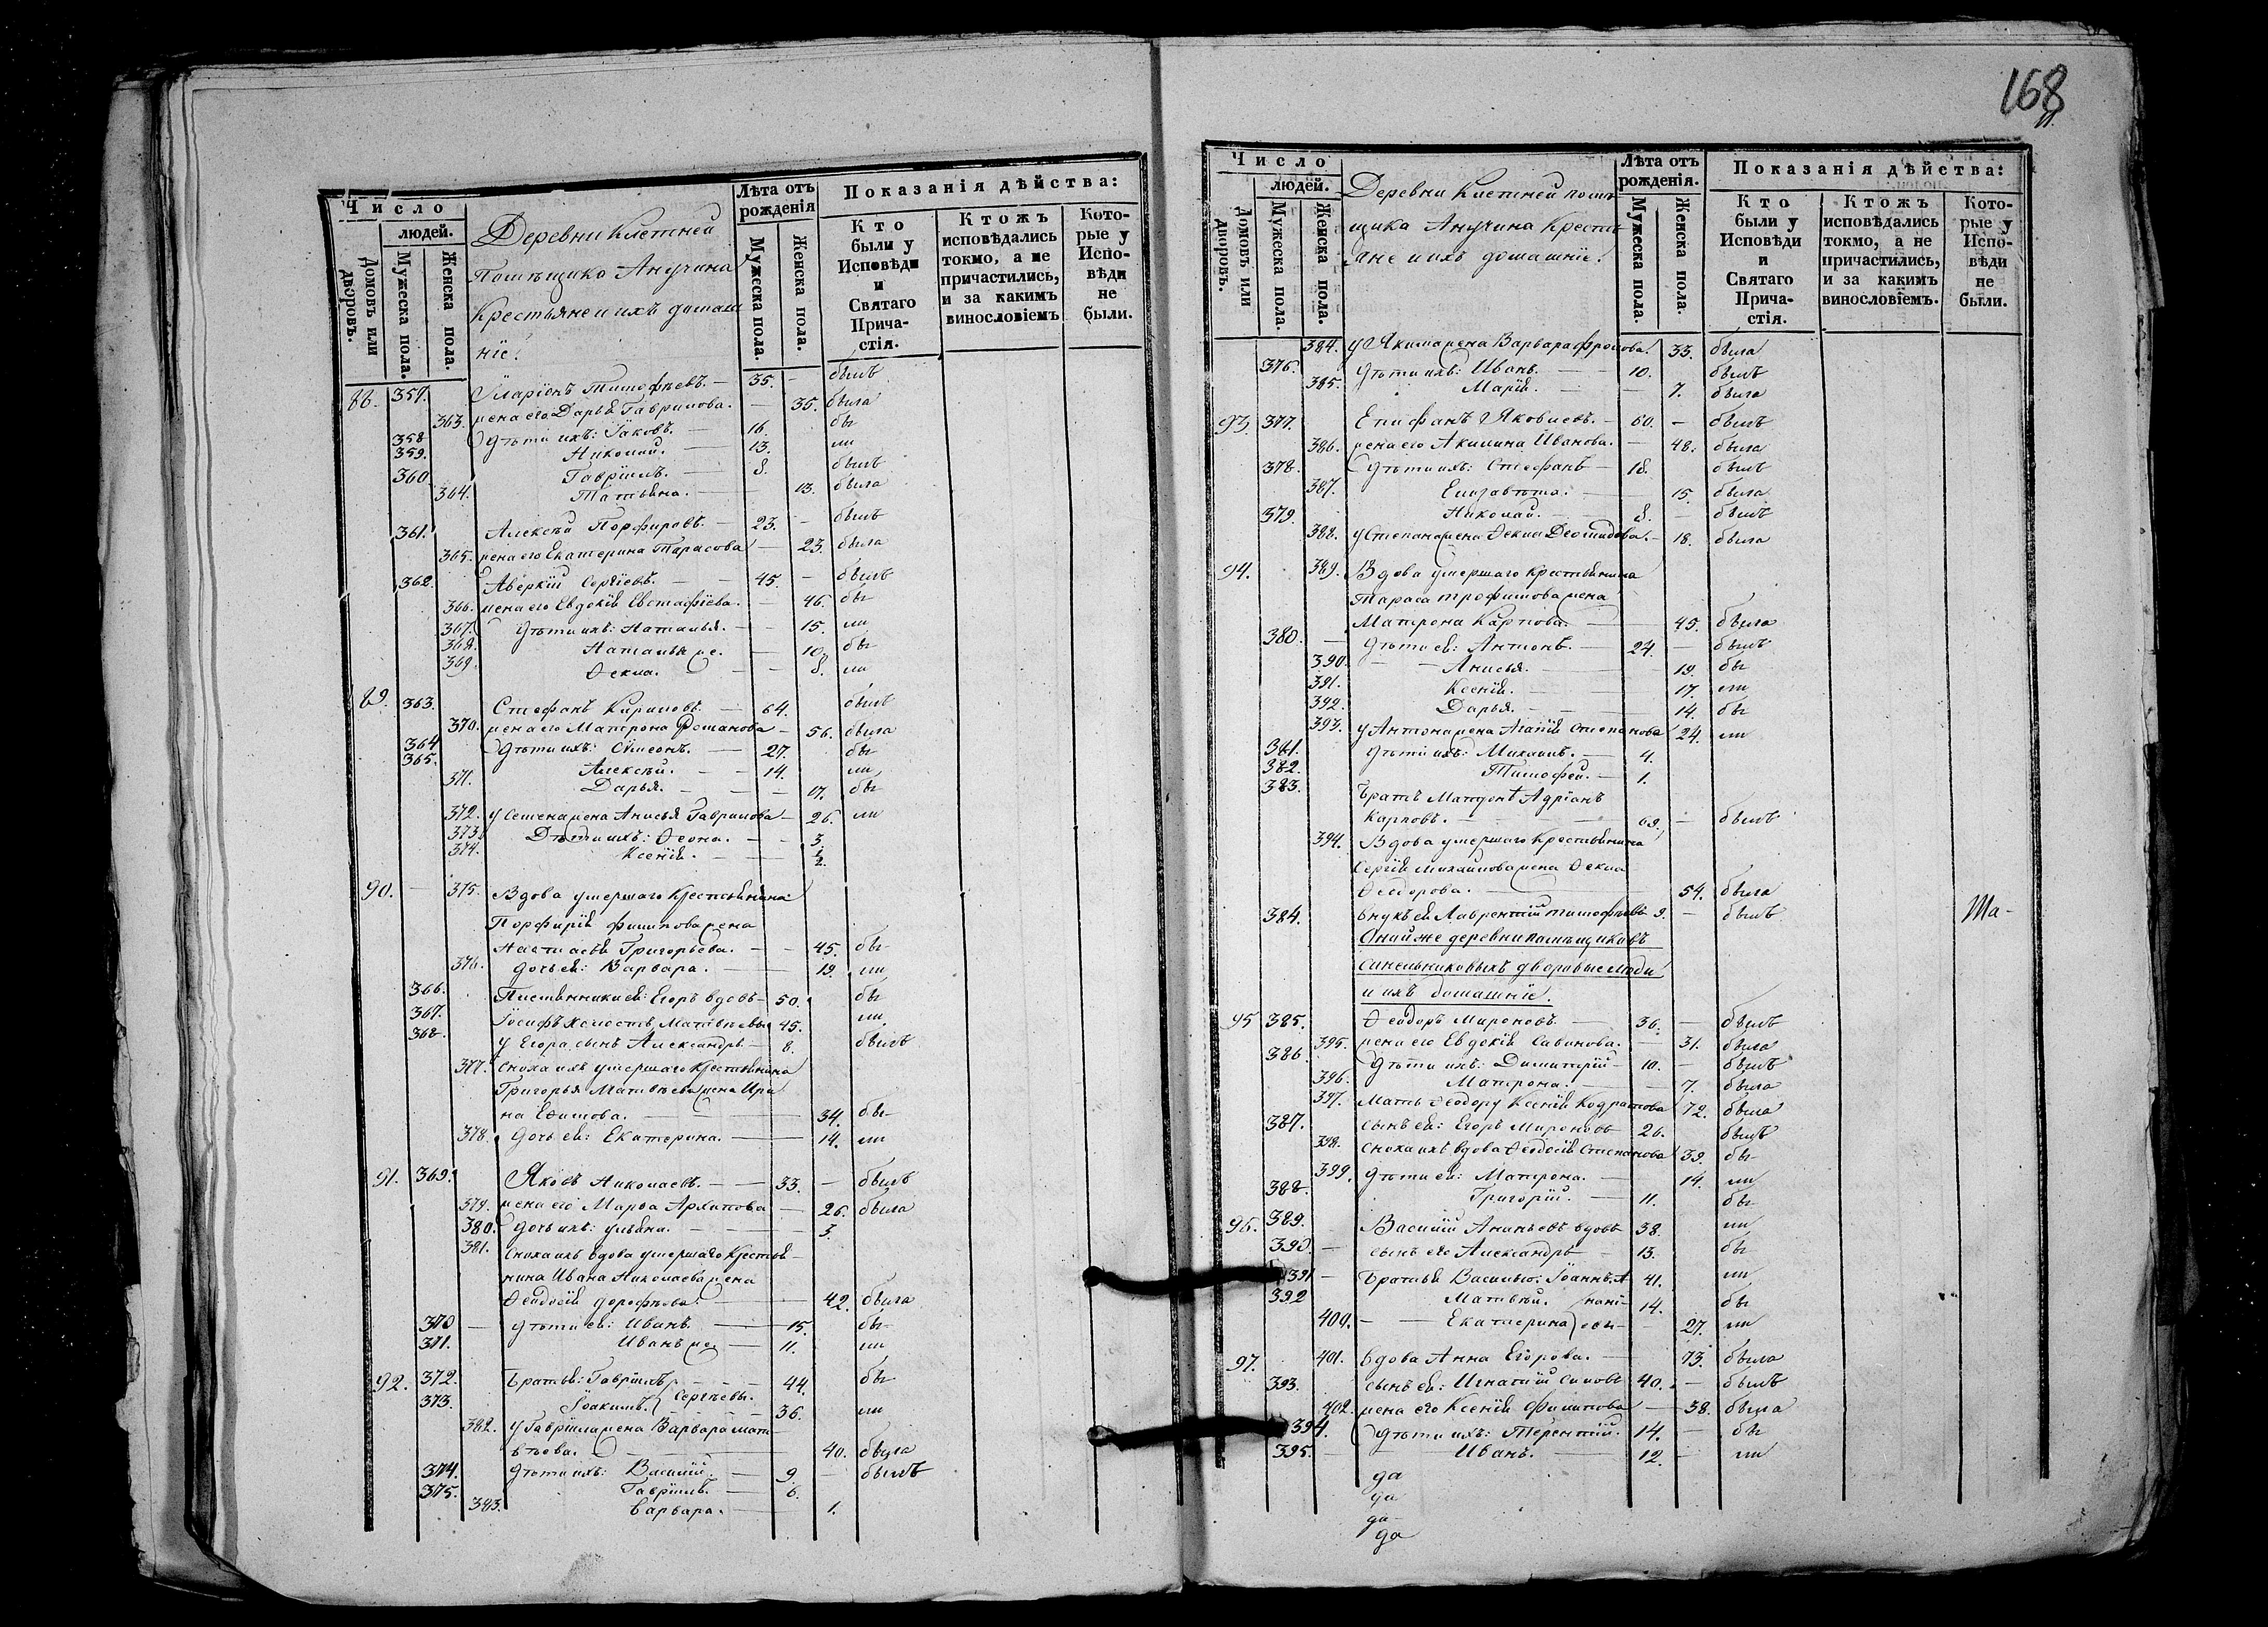 168
Число
людей.
Домовъ или дворовъ.
Мужеска пола.
Женска пола.
Деревни Клетней
Помѣщика Анучина
Крестьяне и ихъ домаш
нiе:
Лѣта отъ рожденія
Мужеска пола.
Женска пола.
Показанія дѣйства:
Кто были у Исповѣди и Святаго Прича-стія.
Ктожъ исповѣдались токмо, а не причастились, и за какимъ винословіемъ
Кото-рые у Испо-вѣди не были.
88. 357. Иларіонъ Тимофеевъ. — 35. — былъ
363. жена его Дарья Гаврилова. — 35. была
358 Дѣти ихъ: Іаковъ. — 16. бы
359. Николай. — 13. ли
360 Гавріилъ. — 8. былъ
364. Татьяна. — 13. была
361. Алексѣй Порфировъ. — 23. — былъ
365. жена его Екатерина Тарасова — 23. была
362. Аверкій Сергіевъ. — 45. — былъ
366. жена его Евдокія Евстафіева. — 46. бы
367. Дѣти ихъ: Наталья. — 15. ли
368. Наталья же. — 10. бы
369. Ѳекла. — 8. ли
89. 363. Стефанъ Кириловъ. — 64. былъ
370. жена его Матрона Романова — 56. была
364 Дѣти ихъ: Сѵмеонъ. — 27. бы
365. Алексѣй. — 14. ли
371. Дарья. — 17. бы
372. у Семена жена Анисья Гаврилова — 26. ли
373. Дѣти ихъ: Ѳеона. — 3.
374. Ксенія. — 1/2.
90. — 375. Вдова умершаго Крестьянина
Порфирія Филипова жена
Настасья Григорьева. — 45. бы
376. дочь ея: Варвара. — 19. ли
366. Племянники ея: Егоръ вдовъ — 50. бы
367. Іосифъ холостъ Матвѣевы 45. ли
368. у Егора сынъ Александръ — 8. былъ
377. сноха ихъ умершаго Крестьянина
Григорья Матвѣева жена Ири
на Ефимова. — 34. бы
378. дочь ея: Екатерина. — 14. ли
91. 369. Яковъ Николаевъ. — 33. — былъ
379. жена его Марѳа Архипова — 26. была
380. дочь ихъ: Ульяна. — 3.
381. сноха ихъ вдова умершаго Крестья-
нина Ивана Николаева жена
Ѳеодосія Дорофѣева. — 42. была
370 — дѣти ея: Иванъ — 15. бы
371. Иванъ же — 11. ли
92. 372. Братья: Гавріилъ — 44. бы
373. Іоакимъ. } Сергѣевы. — 36. ли
382. у Гавріила жена Варвара Мат
вѣева. — 40. была
374. Дѣти ихъ: Василій. — 9. — былъ
375. Гавріилъ. — 6.
383. Варвара. — 1.
Число
людей.
Домовъ или дворовъ.
Мужеска пола.
Женска пола.
Деревни Клетней помѣ
щика Анучина Крестья
яне и ихъ домашніе:
Лѣта отъ рожденія.
Мужеска пола.
Женска пола.
Показанія дѣйства:
Кто были у Исповѣди и Святаго Прича-стія.
Ктожъ исповѣдались токмо, а не причастились, и за какимъ винословіемъ.
Кото-рые у Испо-вѣди не были.
384. у Якима жена Варвара Фролова. 33. была
376. Дѣти ихъ: Иванъ. — 10. былъ
385. Марія. — 7. была
93. 377. Епифанъ Яковлевъ. — 60. — былъ
386. жена его Акилина Иванова. — 48. была
378. Дѣти ихъ: Стефанъ — 18. былъ
387. Елисавета. — 15. была
379. Николай. — 8. — былъ
388. у Степана жена Ѳекла Деомидова. — 18. была
94. 389. Вдова умершаго Крестьянина
Тараса Трофимова жена
Матрона Карпова. — 45. была
380. — дѣти ея: Антонъ. — 24. — былъ
390. Анисья. — 19. бы
391. Ксенія. — 17. ли
392. Дарья. — 14. бы
393. у Антона жена Агапія Степанова 24. ли
381. дѣти ихъ: Михаилъ. — 4.
382. Тимофей. — 1.
383. Братъ Матроны Адріанъ
Карповъ. — 69. — былъ
394. Вдова умершаго Крестьянина
Сергія Михаилова жена Ѳекла
Ѳеодорова. — 54. была
384. внукъ ея Лаврентій Тимофеевъ 9. — былъ
Ма-
Оной же деревни помѣщиковъ
Синельниковыхъ дворовые люди
и ихъ домашніе.
95 385. Ѳеодоръ Мироновъ. — 36. — былъ
395. жена его Евдокія Савинова. — 31. была
386. Дѣти ихъ: Димитрій — 10. — былъ
396. Матрона. — 7. была
397. Мать Ѳеодору Ксенія Кодратова 72. была
387. сынъ ея: Егоръ Мироновъ 26. былъ
398. сноха ихъ вдова Ѳеодосія Степанова 39. бы
399. дѣти ея: Матрона. — 14. ли
388. Григорій. — 11. бы
96. 389. Василій Ананьевъ вдовъ 38. ли
390. — сынъ его Александръ — 13. бы
391 — Братья Василью: Іоаннъ. А 41. ли
392 Матвѣй. нані- 14. бы
400. — Екатерина евы — 27. ли
97. 401. Вдова Анна Егорова. — 73. была
393. сынъ ея: Игнатій Силовъ 40. — былъ
402. жена его Ксенія Филипова — 38. была
394. Дѣти ихъ: Терентій. 14. — бы
395. Иванъ. — 12. — ли
да
да
да
да